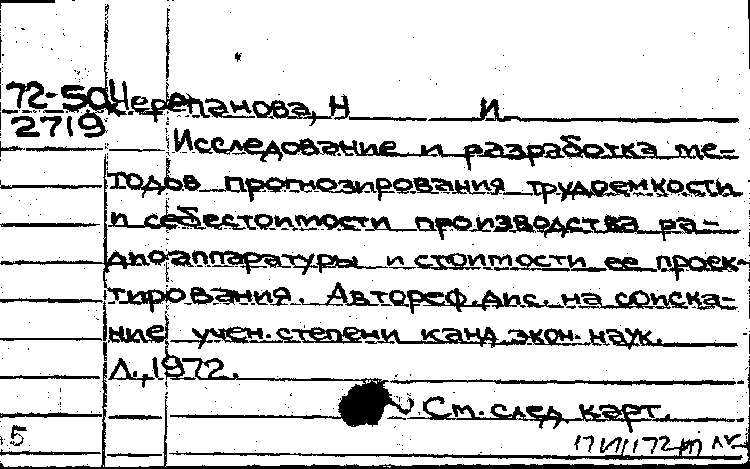 72-50 Черепанова, Н И.
2719
Исследование и разработка ме-
тодов прогнозирования трудоемкости
и себестоимости производства ра-
диоаппаратуры и стоимости ее проек-
тирования. Автореф. дис. на соиска-
ние учен. степени канд. экон. наук.
Л., 1972.
См. след карт.
5